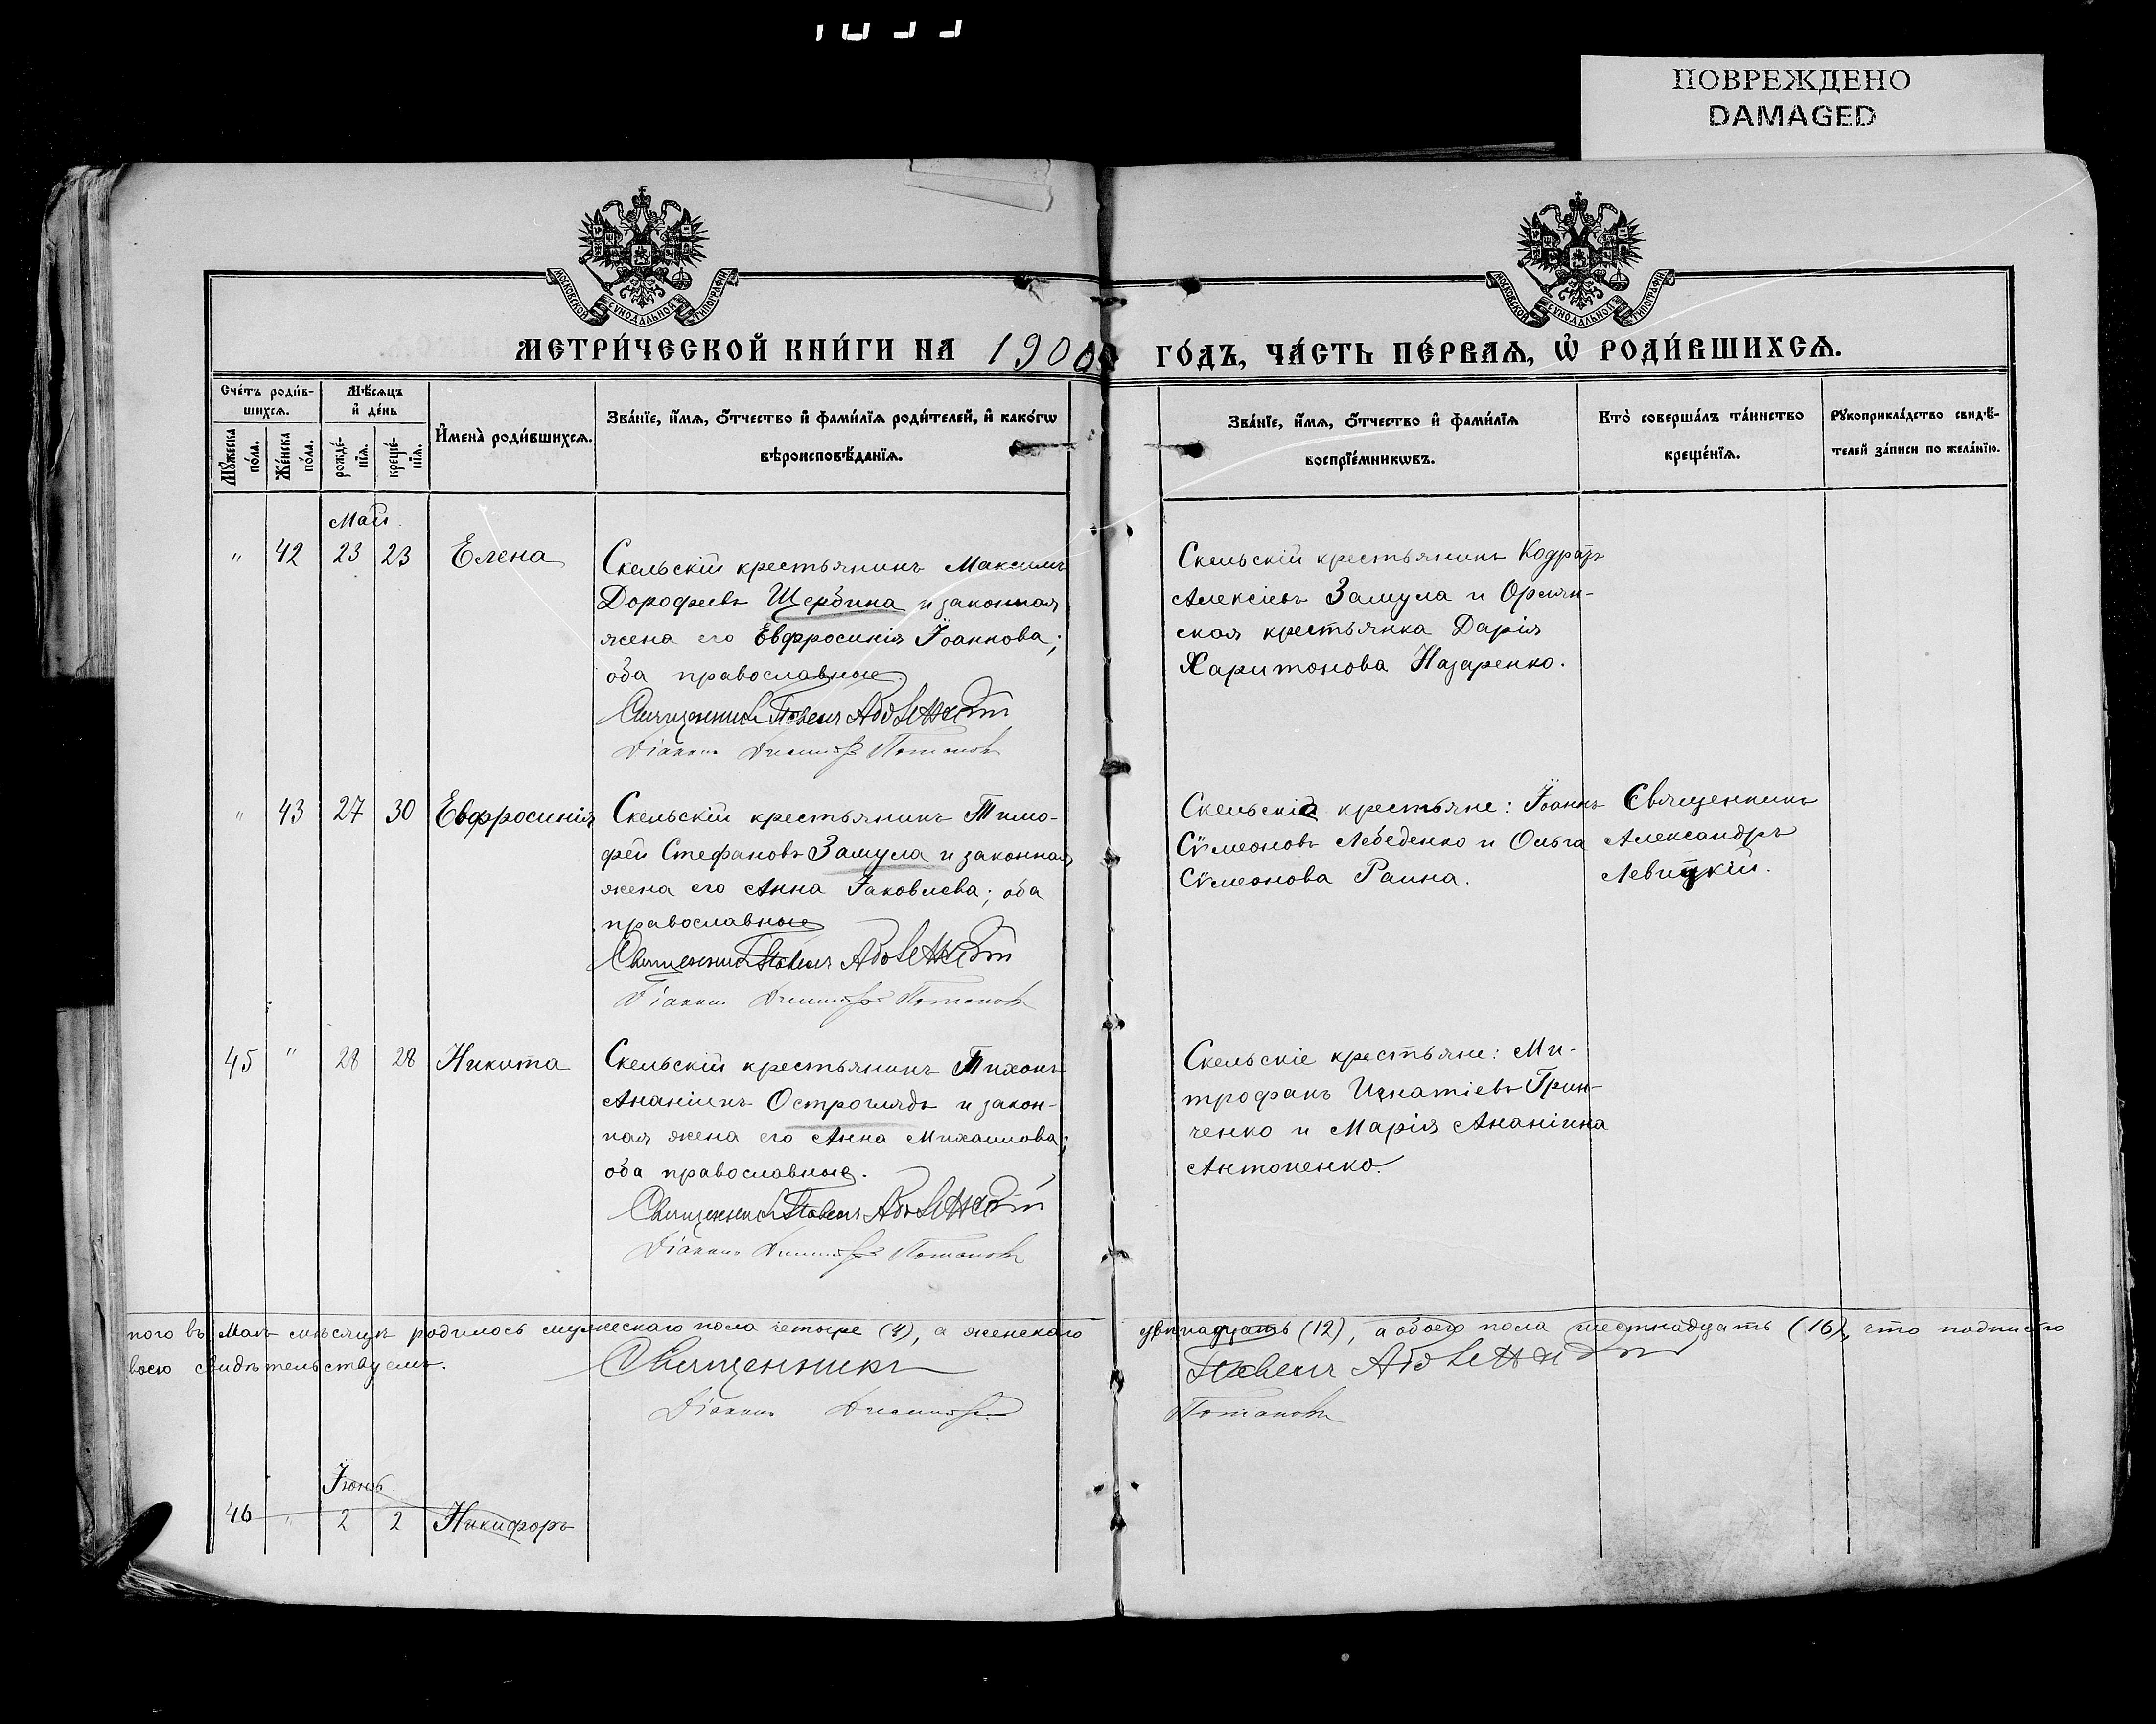 ПОВРЕЖДЕНО
DAMAGED
МОСКОВСКОЙ СѴНОДАЛЬНОЙ ТИПОГРАФІИ
МОСКОВСКОЙ СѴНОДАЛЬНОЙ ТИПОГРАФІИ
МЕТРИ́ЧЕСКОЙ КНИ́ГИ НА 1900 ГО́ДЪ, ЧА́СТЬ ПЕ́РВАѦ, Ѡ҆ РОДИ́ВШИХСѦ.
Сче́тъ роди́в-
шихсѧ.
Мꙋ́жеска по́ла.
Же́нска по́ла.
Мѣ́сѧцъ
и҆ де́нь
рожде́-нїѧ.
креще́-нїѧ.
И҆мена̀ роди́вшихсѧ.
Зва́нїе, и҆́мѧ, ѻ҆́тчество и҆ фами́лїѧ роди́телей, и҆ како́гѡ
вѣроисповѣ́данїѧ.
Зва́нїе, и҆́мѧ, ѻ҆́тчество и҆ фами́лїѧ
воспрїе́мникѡвъ.
Кто̀ соверша́лъ та́инство
креще́нїѧ.
Рꙋкоприкла́дство свидѣ́-
телей за́писи по жела́нїю.
Май.
" 42 23 23 Елена
Скельскій крестьянинъ Максимъ
Дорофеевъ Щербина и законная
жена его Евфросинія Іоаннова;
оба православные.
Священникъ Павелъ
Діаконъ Димитрій Потаповъ
Скельскій крестьянинъ Кодратъ
Алексіевъ Замула и Орлян-
ская крестьянка Дарія
Харитонова Назаренко.
" 43 27 30 Евфросинія
Скельскій крестьянинъ Тимо-
фей Стефановъ Замула и законная
жена его Анна Іаковлева; оба
православные
Священникъ Павелъ
Діаконъ Димитрій Потаповъ
Скельскіе крестьяне: Іоаннъ
Сѵмеоновъ Лебеденко и Ольга
Сѵмеонова Раина.
Священникъ
Александръ
Левицкій.
45 " 28 28 Никита
Скельскій крестьянинъ Тихонъ
Ананіинъ Остроглядъ и закон-
ная жена его Анна Михаилова;
оба православные.
Священникъ Павелъ
Діаконъ Димитрій Потаповъ
Скельскіе крестьяне: Ми-
трофанъ Игнатіевъ Грин-
ченко и Марія Ананіина
Антоненко.
ного въ Маѣ мѣсяцѣ родилось мужескаго пола четыре (4), а женскаго двѣнадцать (12), а обоего пола шестнадцать (16), что подписью
воею свидѣтельствуемъ.
Священникъ Павелъ
Діаконъ Димитрій Потаповъ
Іюнь.
46 " 2 2 Никифоръ